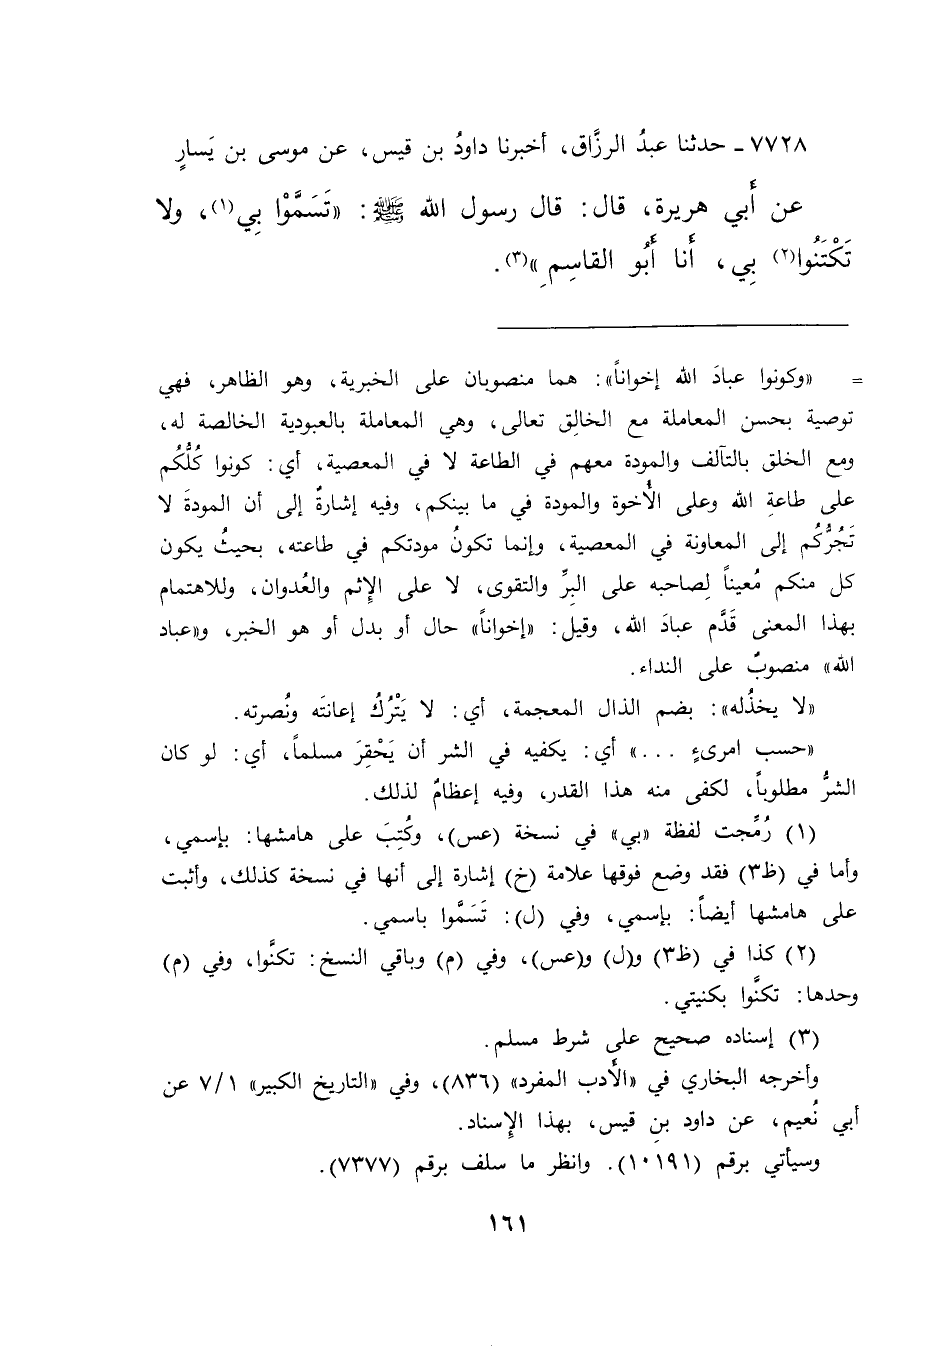 ٧٧٢٨ - حدثنا عبدُ الرزَّاق، أخبرنا داودُ بن قيس، عن موسى بن يَسارٍ
عن أَبي هريرة، قال: قال رسول الله ﷺ: «تَسَمَّوْا بِي(١)، ولا
تَكْتَنُوا(٢) بِي، أَنا أَبُو القاسِمِ»(٣).
= «وكونوا عبادَ الله إخواناً»: هما منصوبان على الخبرية، وهو الظاهر، فهي
توصية بحسن المعاملة مع الخالِق تعالى، وهي المعاملة بالعبودية الخالصة له،
ومع الخلق بالتآلف والمودة معهم في الطاعة لا في المعصية، أي: كونوا كُلُّكُم
على طاعةِ الله وعلى الأخوة والمودة في ما بينكم، وفيه إشارةٌ إلى أن المودةَ لا
تَجُرُّكُم إلى المعاونة في المعصية، وإنما تكونُ مودتكم في طاعته، بحيثُ يكون
كل منكم مُعيناً لِصاحبه على البِرِّ والتقوى، لا على الإِثم والعُدوان، وللاهتمام
بهذا المعنى قَدَّم عبادَ الله، وقيل: «إخواناً» حال أو بدل أو هو الخبر، و«عباد
الله» منصوبٌ على النداء.
«لا يخذُله»: بضم الذال المعجمة، أي: لا يَتْرُكُ إعانتَه ونُصرته.
«حسب امرىءٍ ...» أي: يكفيه في الشر أن يَحْقِرَ مسلماً، أي: لو كان
الشرُّ مطلوباً، لكفى منه هذا القدر، وفيه إعظامٌ لذلك.
(١) رُمِّجت لفظة «بي» في نسخة (عس)، وكُتِبَ على هامشها: بإسمي،
وأما في (ظ٣) فقد وضع فوقها علامة (خ) إشارة إلى أنها في نسخة كذلك، وأثبت
على هامشها أيضاً: بإسمي، وفي (ل): تَسَمَّوا باسمي.
(٢) كذا في (ظ٣) و(ل) و(عس)، وفي (م) وباقي النسخ: تكنَّوا، وفي (م)
وحدها: تكنَّوا بكنيتي.
(٣) إسناده صحيح على شرط مسلم.
وأخرجه البخاري في «الأدب المفرد» (٨٣٦)، وفي «التاريخ الكبير» ٧/١ عن
أبي نُعيم، عن داود بنِ قيس، بهذا الإِسناد.
وسيأتي برقم (١٠١٩١). وانظر ما سلف برقم (٧٣٧٧).
١٦١